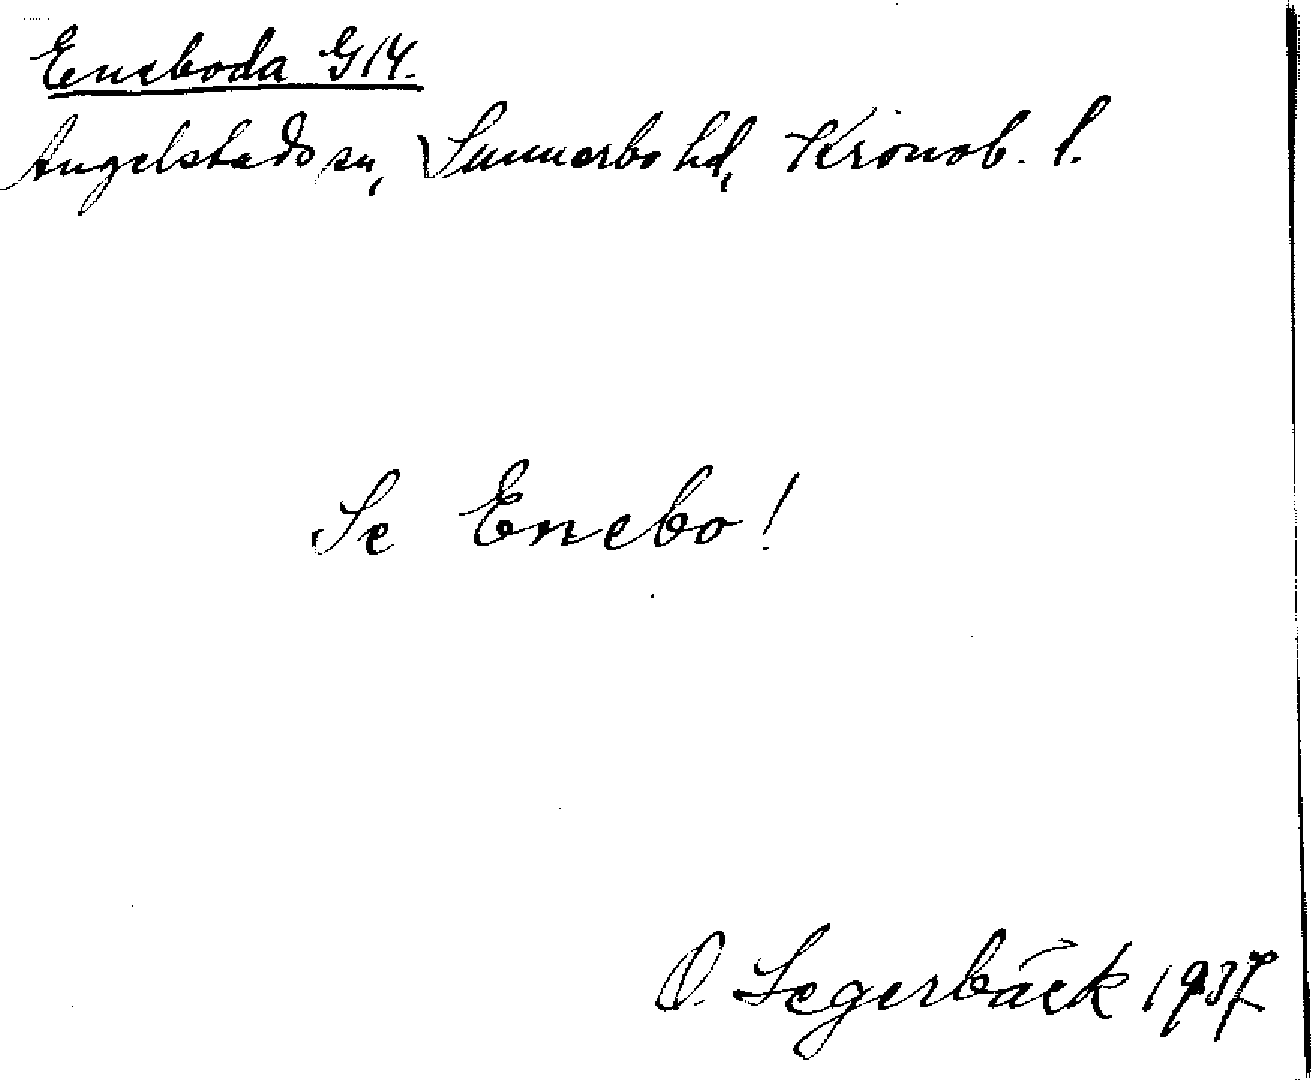 Eneboda G14.
Angelstads sn, Sunnerbo hd, Kronob. l.
Se Enebo!
O. Segerbäck 1937